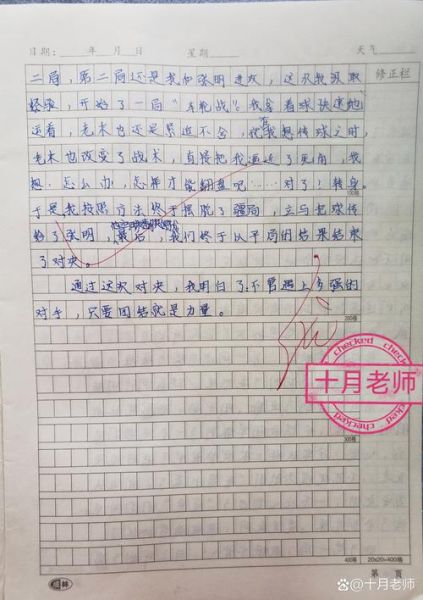 日期：　年　月　日　星期　天气
修正栏
二局，第二局还是我和张明进攻，这次我吸取
经验，开始了一局“车轮战”我拿着球快速地
运着，老木也还是紧追不舍，我想传球之时，
老木也改变了战术，直接把我逼近了死角，我
想，怎么办，怎样才能翻盘呢……对了！转身。
100格
于是，我按照方法终于摆脱了僵局，立马把球传
给了张明，最后，我们终于以平局的结果结束
了对决。
通过这次对决，我明白了不管遇上多强的
200格
对手，只要团结就是力量。
checked checked
十月老师
checked checked
300格
400格
20x20=400格
第　页
@十月老师